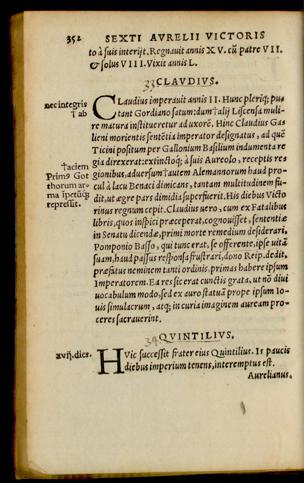 352 SEXTI AVRELII VICTORIS
to à suis interijt. Regnauit annis XV. cũ patre VII.
& solus VIII. Vixit annis L.
33 CLAVDIVS.
nec integris
† ab
CLaudius imperauit annis II. Hunc pleriq; pu-
tant Gordiano satum: dum† alij Liscensa muli-
re matura institueretur ad uxorē. Hinc Claudius Gal
lieni morientis sentētia imperator designatus, ad quē
Ticini positum per Gallonium Basilium indumenta re
gia direxerat: extinctoq; à suis Aureolo, receptis re
gionibus, aduersum† autem Alemannorum haud pro-
†aciem
Prim9 Got
thorum ar-
ma īpetūq;
repressit.
cul à lacu Benaci dimicans, tantam multitudinem fu-
dit, ut ægre pars dimidia superfuerit. His diebus Victo
rinus regnum cepit. Claudius uero, cum ex Fatalibus
libris, quos inspici præceperat, cognouisset, sententiæ
in Senatu dicendæ, primi morte remedium desiderari,
Pomponio Basso, qui tunc erat, se offerente, ipse uitā
suam, haud passus responsa frustrari, dono Reip. dedit,
præfatus neminem tanti ordinis primas habere ipsum
Imperatorem. Ea res sic erat cunctis grata, ut nō diui
uocabulum modo, sed ex auro statuā prope ipsum Io-
uis simulacrum, atq; in curia imaginem auream pro-
ceres sacrauerint.
34 QVINTILIVS.
xvij. dies.
HVic successit frater eius Quintilius. Is paucis
diebus imperium tenens, interemptus est.
Aurelianus.